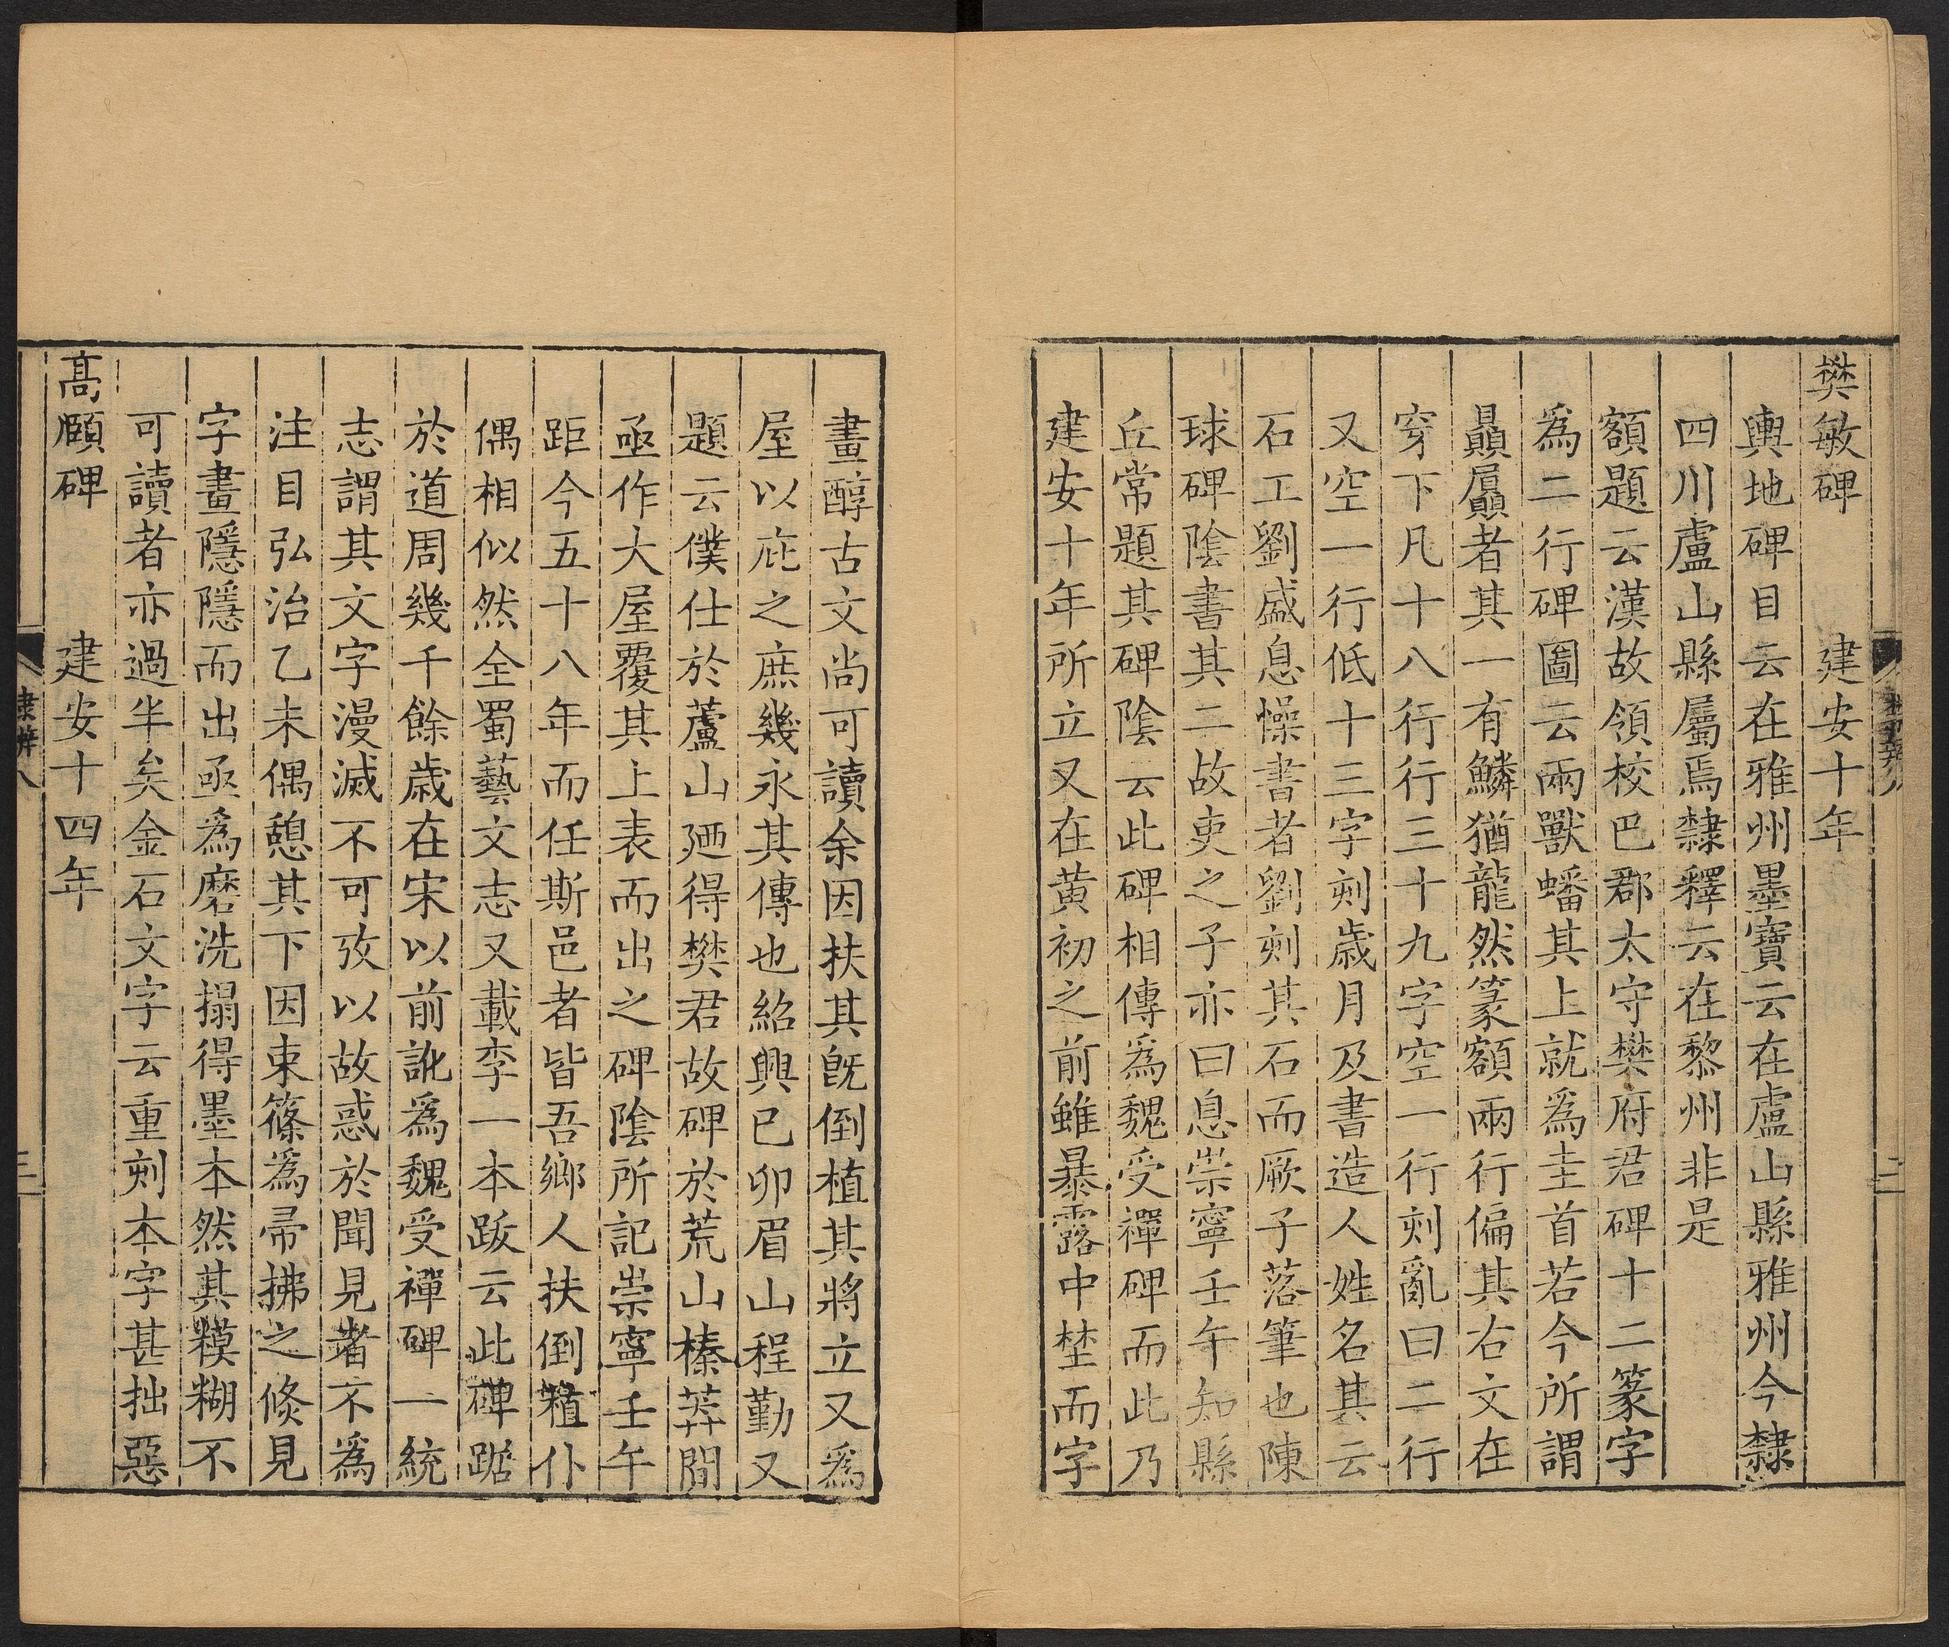 樊敏碑　建安十年
輿地碑目云在雅州墨寶云在盧山縣雅州今隸
四川盧山縣屬焉隸釋云在黎州非是
額題云漢故領校巴郡太守樊府君碑十二篆字
爲二行碑圖云兩獸蟠其上就爲圭首若今所謂
贔屭者其一有鱗猶龍然篆額兩行偏其右文在
穿下凡十八行行三十九字空一行刻亂曰二行
又空一行低十三字刻歲月及書造人姓名其云
石工劉盛息懆書者劉刻其石而厥子落筆也陳
球碑陰書其二故吏之子亦曰息崇寧壬午知縣
丘常題其碑陰云此碑相傳爲魏受禪碑而此乃
建安十年所立又在黄初之前雖暴露中埜而字
畫醇古文尚可讀余因扶其旣倒植其將立又爲
屋以庇之庶幾永其傳也紹興已卯眉山程勤又
題云僕仕於蘆山廼得樊君故碑於荒山榛莽間
亟作大屋覆其上表而出之碑陰所記崇寧壬午
距今五十八年而任斯邑者皆吾鄉人扶倒植仆
偶相似然全蜀藝文志又載李一本跋云此碑踞
於道周幾千餘歲在宋以前訛爲魏受禪碑一統
志謂其文字漫滅不可攷以故惑於聞見者不爲
注目弘治乙未偶憩其下因束篠爲帚拂之倏見
字畫隱隱而出亟爲磨洗搨得墨本然其糢糊不
可讀者亦過半矣金石文字云重刻本字甚拙惡
高頤碑　建安十四年
隸辨八
三
二